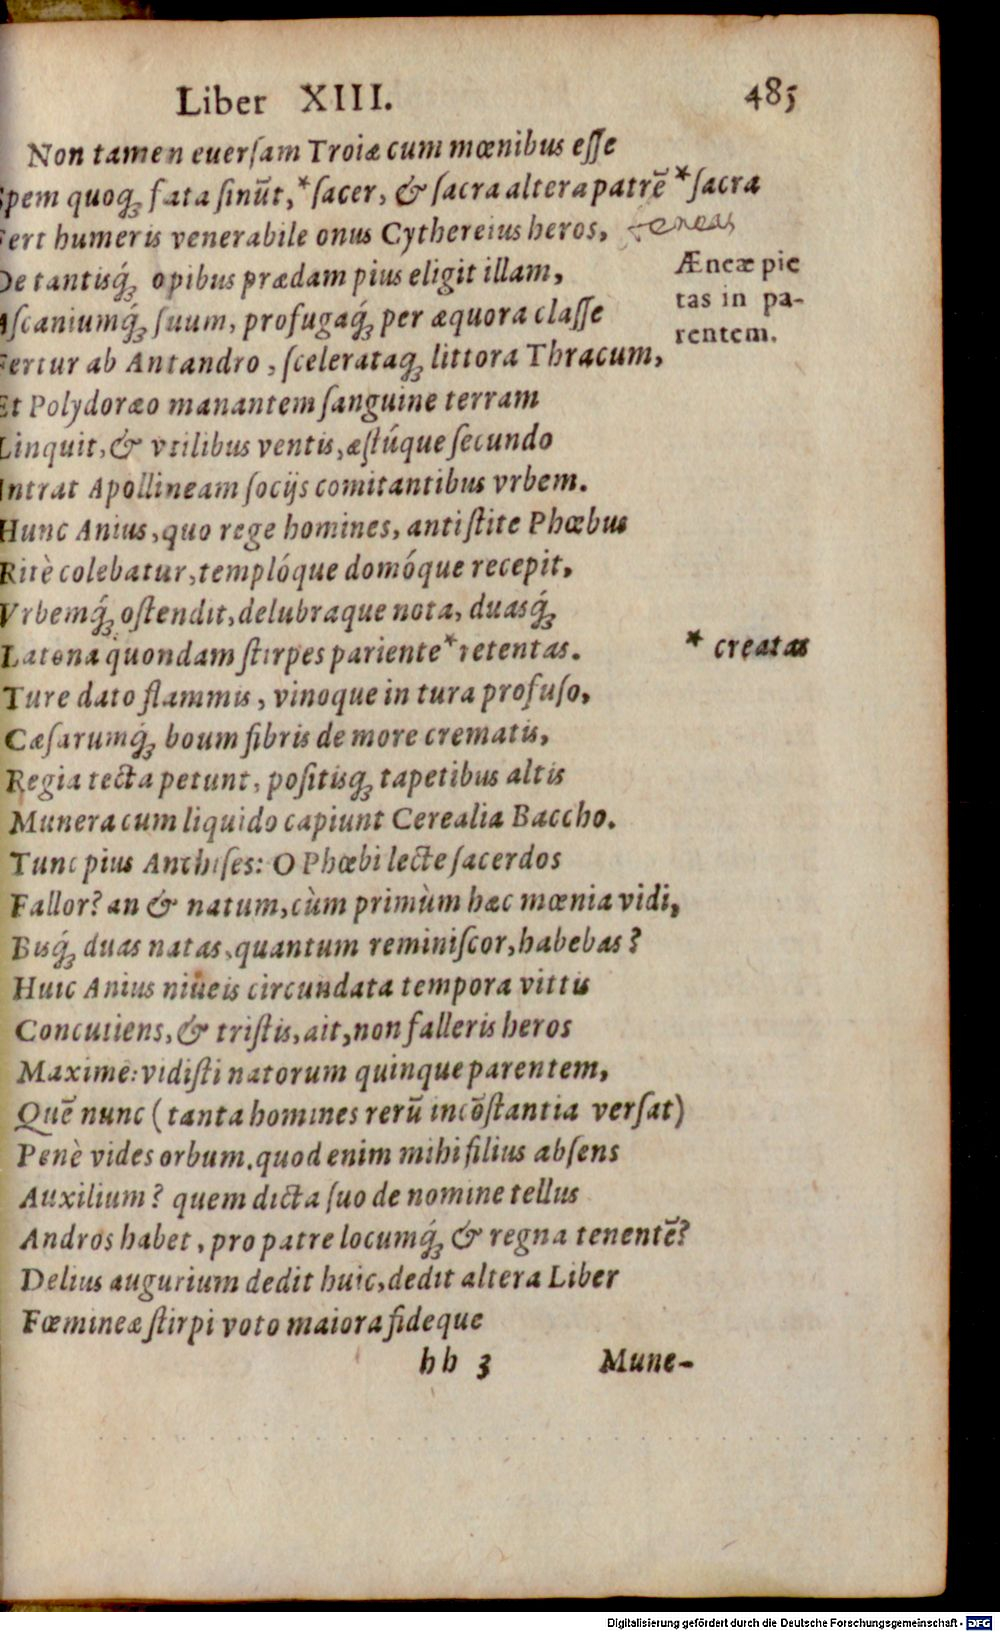 Liber XIII. 485
Non tamen euerſam Troiæ cum mœnibus eſſe
Spem quoq; fata ſinūt, *ſacer, & ſacra altera patrē *ſacra
Fert humeris venerabile onus Cythereius heros, Æneas
De tantisq́; opibus prædam pius eligit illam,
Aſcaniumq́; ſuum, profugaq́; per æquora claſſe
Fertur ab Antandro, ſcelerataq; littora Thracum,
Æneæ pie
tas in pa-
rentem.
Et Polydoræo manantem ſanguine terram
Linquit, & vtilibus ventis, æſtúque ſecundo
Intrat Apollineam ſocijs comitantibus vrbem.
Hunc Anius, quo rege homines, antiſtite Phœbus
Ritè colebatur, templóque domóque recepit,
Vrbemq́; oſtendit, delubraque nota, duasq́;
Latona quondam ſtirpes pariente *retentas. * creatas
Ture dato flammis, vinoque in tura profuſo,
Cæſarumq́; boum fibris de more crematis,
Regia tecta petunt, poſitisq; tapetibus altis
Munera cum liquido capiunt Cerealia Baccho.
Tunc pius Anchiſes: O Phœbi lecte ſacerdos
Fallor? an & natum, cùm primùm hæc mœnia vidi,
Bisq́; duas natas, quantum reminiſcor, habebas?
Huic Anius niueis circundata tempora vittis
Concutiens, & triſtis, ait, non falleris heros
Maxime: vidiſti natorum quinque parentem,
Quē nunc (tanta homines rerū incōſtantia verſat)
Penè vides orbum. quod enim mihi filius abſens
Auxilium? quem dicta ſuo de nomine tellus
Andros habet, pro patre locumq́; & regna tenentē?
Delius augurium dedit huic, dedit altera Liber
Fœmineæ ſtirpi voto maiora fideque
hh 3 Mune-
Digitalisierung gefördert durch die Deutsche Forschungsgemeinschaft - DFG